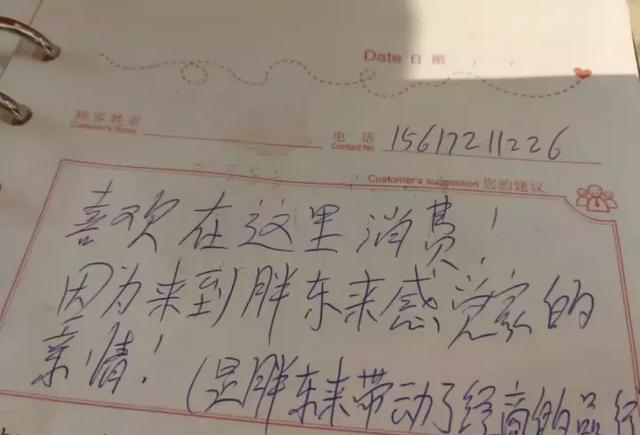 Date 日期
顾客姓名
Customer's Name
电话 15617211226
Contact No
Customer's suggestion 您的建议
喜欢在这里消费！
因为来到胖东来感觉家的
亲情！
（是胖东来带动了经商的品